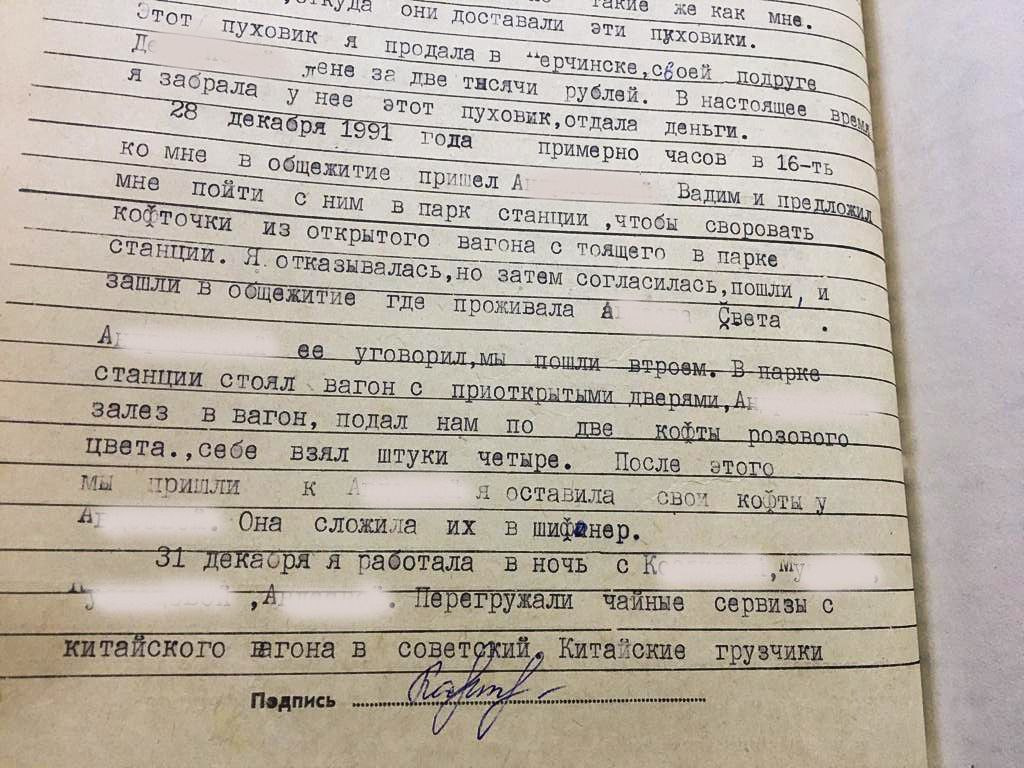 такие же как мне.
,откуда они доставали эти пуховики.
Этот пуховик я продала в ерчинске,своей подруге
Де лене за две тысячи рублей. В настоящее время
я забрала у нее этот пуховик,отдала деньги.
28 декабря 1991 года примерно часов в 16-ть
ко мне в общежитие пришел А Вадим и предложил
мне пойти с ним в парк станции ,чтобы своровать
кофточки из открытого вагона с тоящего в парке
станции. Я отказывалась,но затем согласилась,пошли, и
зашли в общежитие где проживала А Света .
А ее уговорил,мы пошли втроем. В парке
станции стоял вагон с приоткрытыми дверями,Ан
залез в вагон, подал нам по две кофты розового
цвета.,себе взял штуки четыре. После этого
мы пришли к А я оставила свои кофты у
А . Она сложила их в шифонер.
31 декабря я работала в ночь с К ,Му ,
,А . Перегружали чайные сервизы с
китайского вагона в советский. Китайские грузчики
Подпись